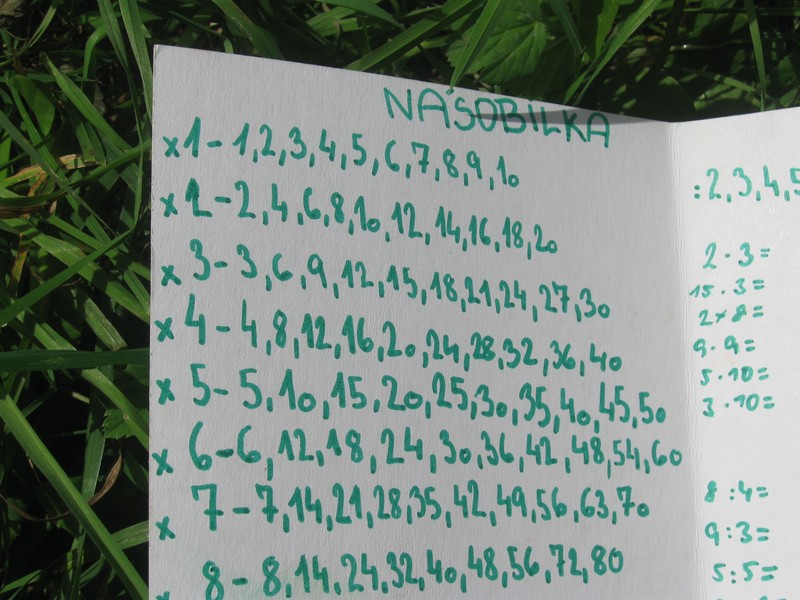 NÁSOBILKA
x1-1,2,3,4,5,6,7,8,9,10
x2-2,4,6,8,10,12,14,16,18,20
x3-3,6,9,12,15,18,21,24,27,30
x4-4,8,12,16,20,24,28,32,36,40
x5-5,10,15,20,25,30,35,40,45,50
x6-6,12,18,24,30,36,42,48,54,60
x7-7,14,21,28,35,42,49,56,63,70
x8-8,14,24,32,40,48,56,72,80
:2,3,4,5
2·3=
15·3=
2x8=
9·9=
5·10=
3·10=
8:4=
9:3=
5:5=